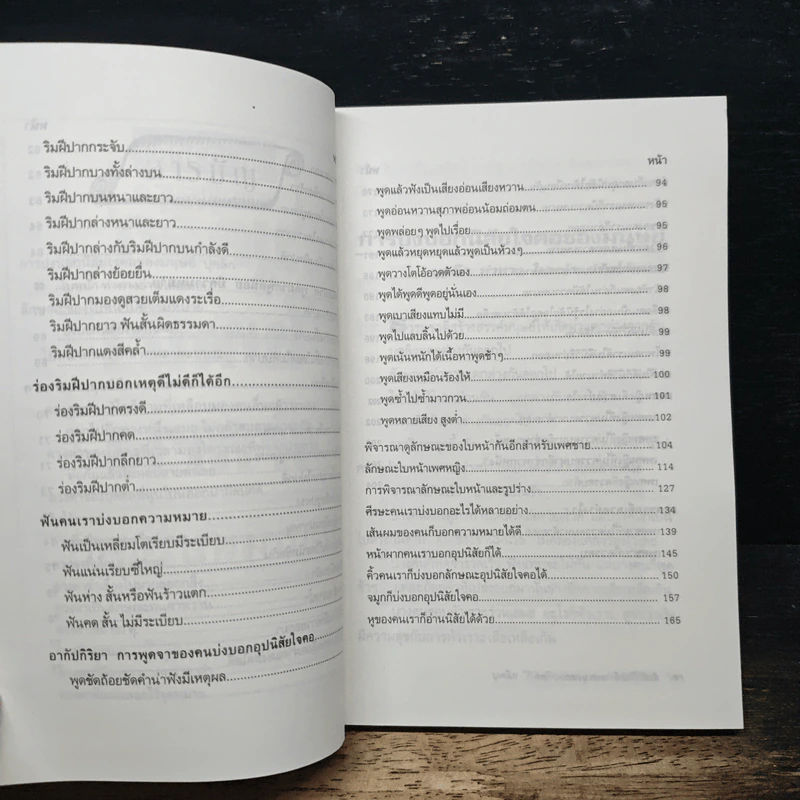 ริมฝีปากกระจับ
ริมฝีปากบางทั้งล่างบน
ริมฝีปากบนหนาและยาว
ริมฝีปากล่างหนาและยาว
ริมฝีปากล่างกับริมฝีปากบนกำลังดี
ริมฝีปากล่างย้อยยื่น
ริมฝีปากมองดูสวยเต็มแดงระเรื่อ
ริมฝีปากยาว ฟันสั้นผิดธรรมดา
ริมฝีปากแดงสีคล้ำ
ร่องริมฝีปากบอกเหตุดีไม่ดีก็ได้อีก
ร่องริมฝีปากตรงดี
ร่องริมฝีปากคด
ร่องริมฝีปากลึกยาว
ร่องริมฝีปากต่ำ
ฟันคนเราบ่งบอกความหมาย
ฟันเป็นเหลี่ยมโตเรียบมีระเบียบ
ฟันแน่นเรียบซี่ใหญ่
ฟันห่าง สั้นหรือฟันร้าวแตก
ฟันคด สั้น ไม่มีระเบียบ
อากัปกิริยา การพูดจาของคนบ่งบอกอุปนิสัยใจคอ
พูดชัดถ้อยชัดคำน่าฟังมีเหตุผล
หน้า
พูดแล้วฟังเป็นเสียงอ่อนเสียงหวาน 94
พูดอ่อนหวานสุภาพอ่อนน้อมถ่อมตน 95
พูดพล่อยๆ พูดไปเรื่อย 95
พูดแล้วหยุดหยุดแล้วพูดเป็นห้วงๆ 96
พูดวางโตโอ้อวดตัวเอง 97
พูดได้พูดดีพูดอยู่นั่นเอง 98
พูดเบาเสียงแทบไม่มี 98
พูดไปแลบลิ้นไปด้วย 99
พูดเน้นหนักได้เนื้อหาพูดช้าๆ 99
พูดเสียงเหมือนร้องไห้ 100
พูดซ้ำไปซ้ำมาวกวน 101
พูดหลายเสียง สูงต่ำ 102
พิจารณาดูลักษณะของใบหน้ากันอีกสำหรับเพศชาย 104
ลักษณะใบหน้าเพศหญิง 114
การพิจารณาลักษณะใบหน้าและรูปร่าง 127
ศีรษะคนเราบ่งบอกอะไรได้หลายอย่าง 134
เส้นผมของคนก็บอกความหมายได้ดี 139
หน้าผากคนเราบอกอุปนิสัยก็ได้ 145
คิ้วคนเราก็บ่งบอกลักษณะอุปนิสัยใจคอได้ 150
จมูกก็บ่งบอกอุปนิสัยใจคอ 157
หูของคนเราก็อ่านนิสัยได้ด้วย 165